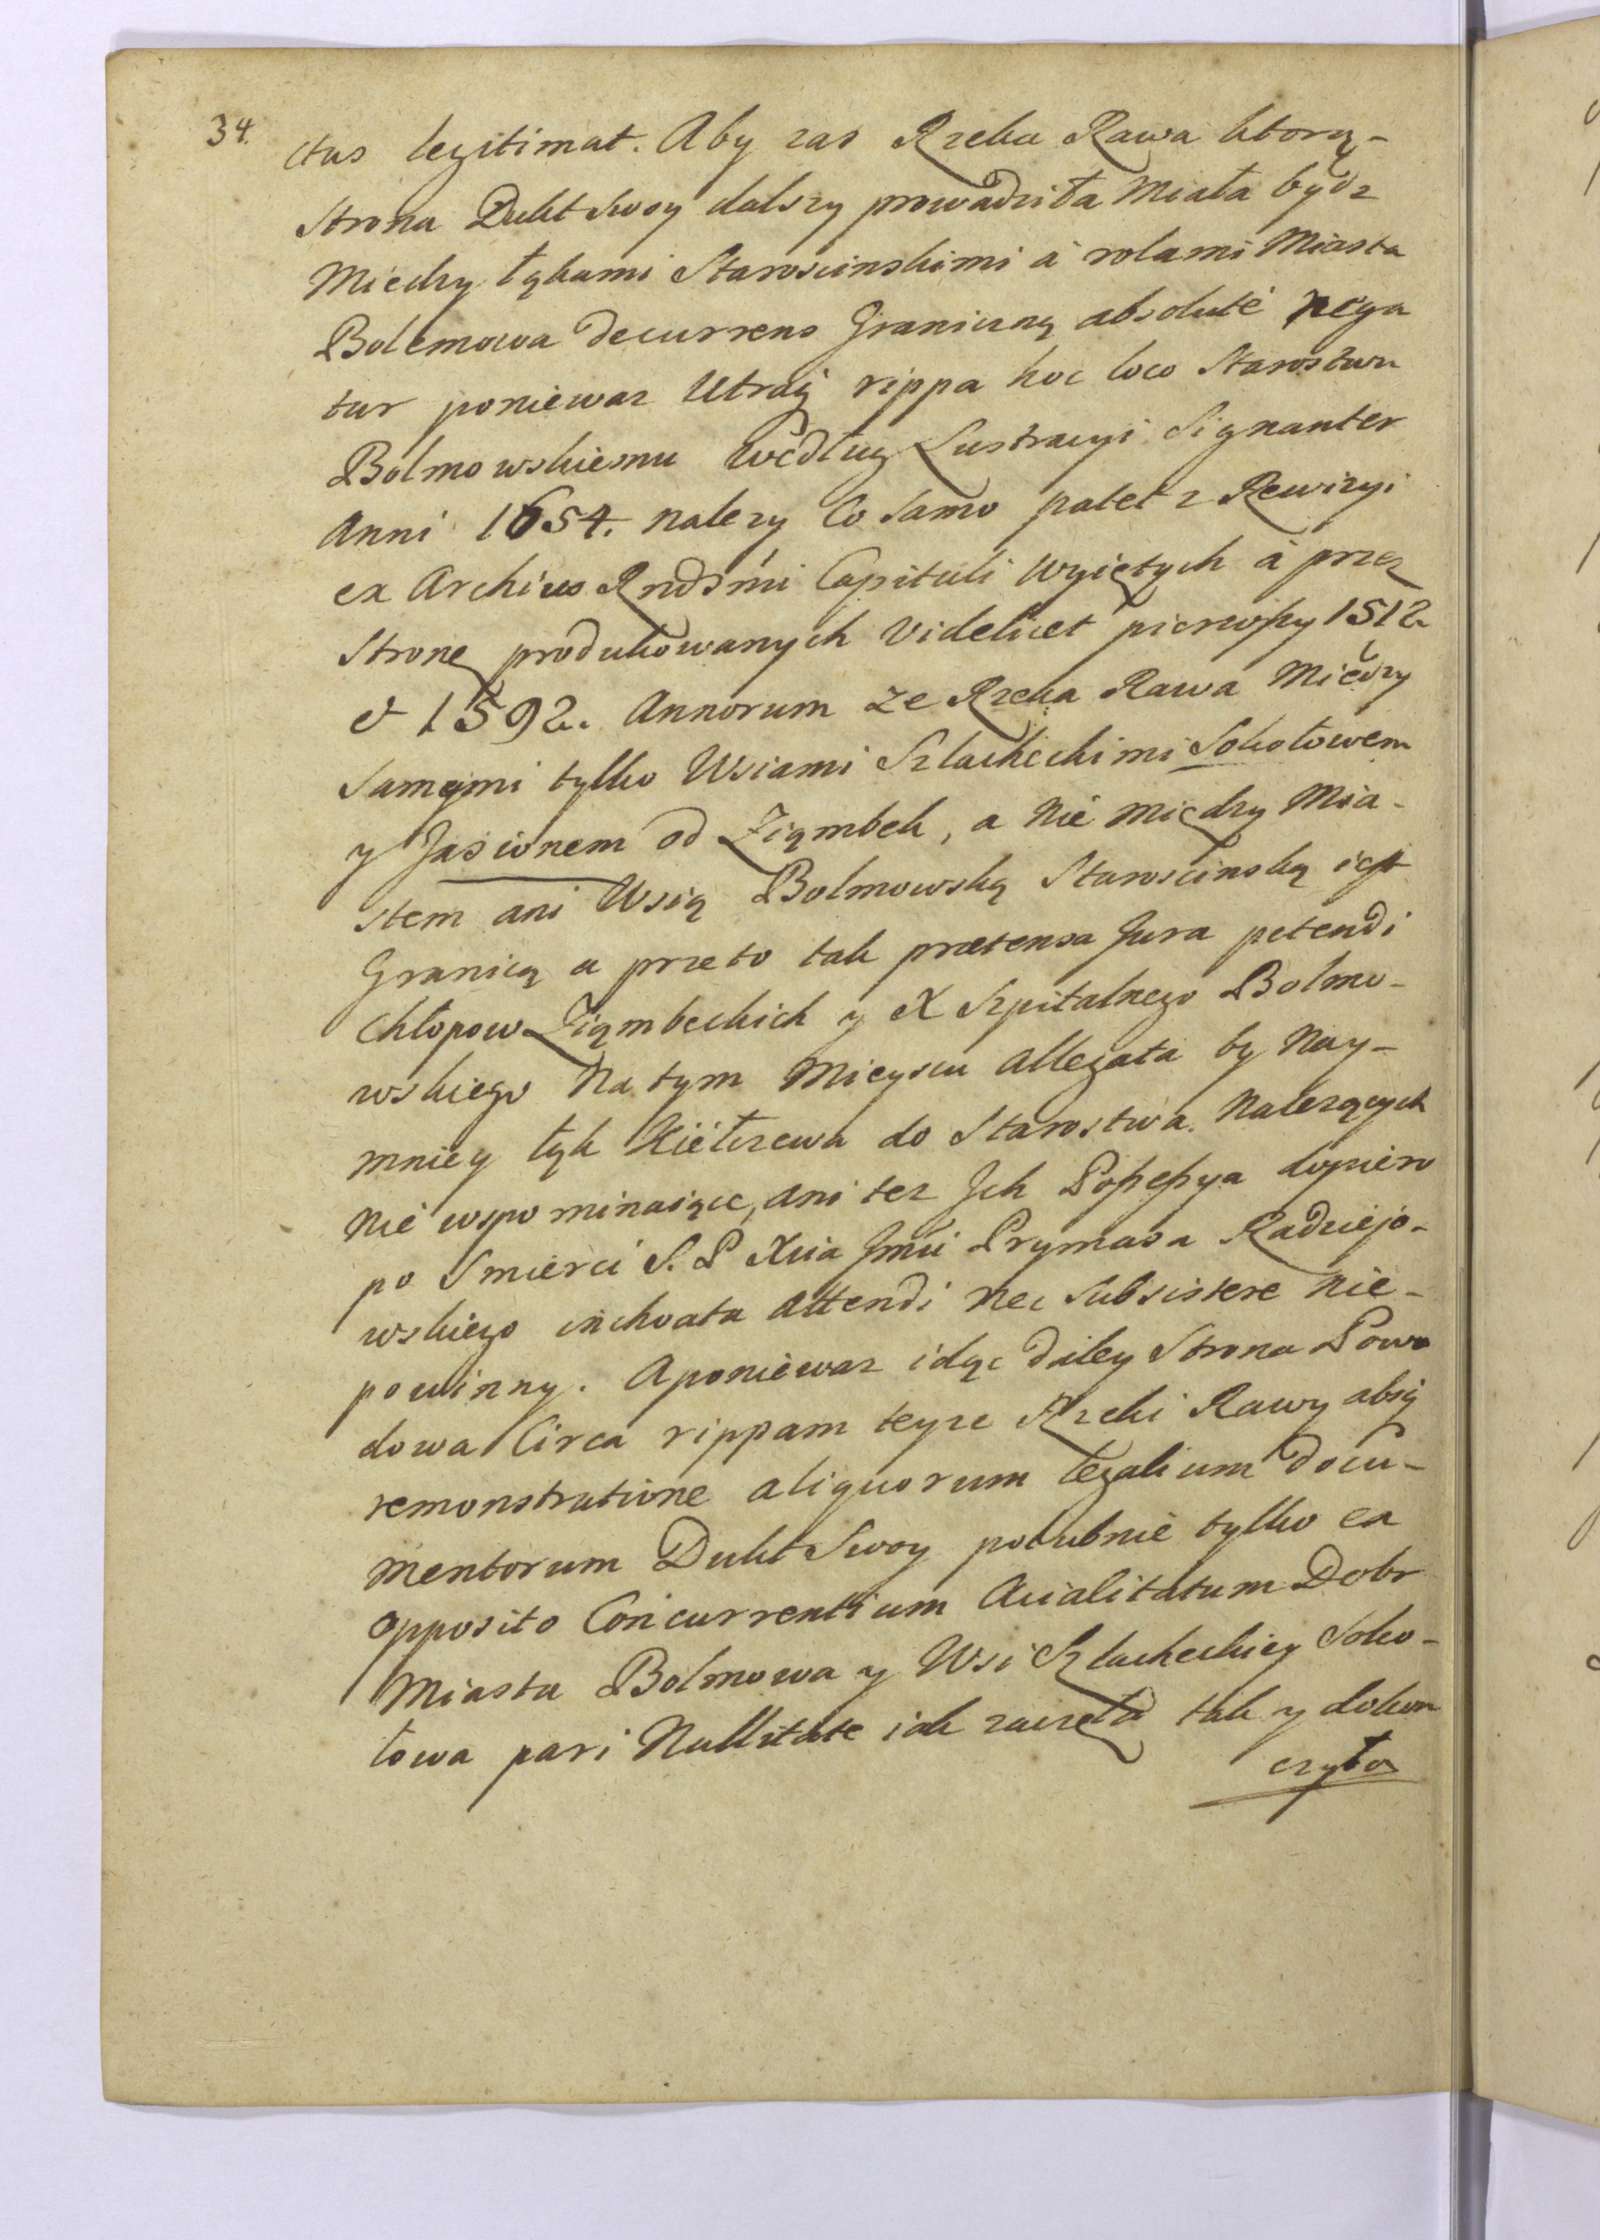 34.
ctus legitimat. Aby zas Rzeka Rawa ktorą-
Strona Dukt Swoy dalszy prowadziła Miała bydz
Miedzy łąkami Staroscinskimi á rolami Miasta
Bolemowa decurrens Graniczną absoluté nega
tur poniewaz Utraq rippa hoc loco Starostwu
Bolmowskiemu według Lustracyi Signanter
Anni 1654. nalezy Co Samo patet z Rewizyi
ex Archivo Rndsmi Capituli wyiętych á przez
Stronę produkowanych videlicet pierwszy 1512
et 1592. Annorum ze Rzeka Rawa Między
Samęmi tylko Wsiami Szlacheckimi Sokołowem
y Jasionem od Ziąmbek, a Nie między Mia-
stem ani Wsią Bolmowską Staroscinską iest
Granicą a przeto tak prætensa Jura petendi
Chłopow Ziąmbeckich y X Szpitalnego Bolmo-
wskiego Na tym Mieyscu Allegata by Nay-
mniey łąk Kiełzewa do Starostwa. Nalezących
nie wspominaiące, ani tez Jch Possessya dopiero
po Smierci S. P Xcia Jmci Prymasa Radziejo-
wskiego inchoata Attendi nec Subsistere nie-
powinny. Aponiewaz idąc daley Strona Powo
dowa Circa rippam teyze Rzeki Rawy absq
remonstratione aliquorum legalium docu-
mentorum Dukt Swoy potubnie tylko ex
opposito Concurrentium Acialitatum Dobr
Miasta Bolmowa y Wsi Szlacheckiey Soko-
łowa pari Nullitate iak zaczęła tak y dokon
czyła